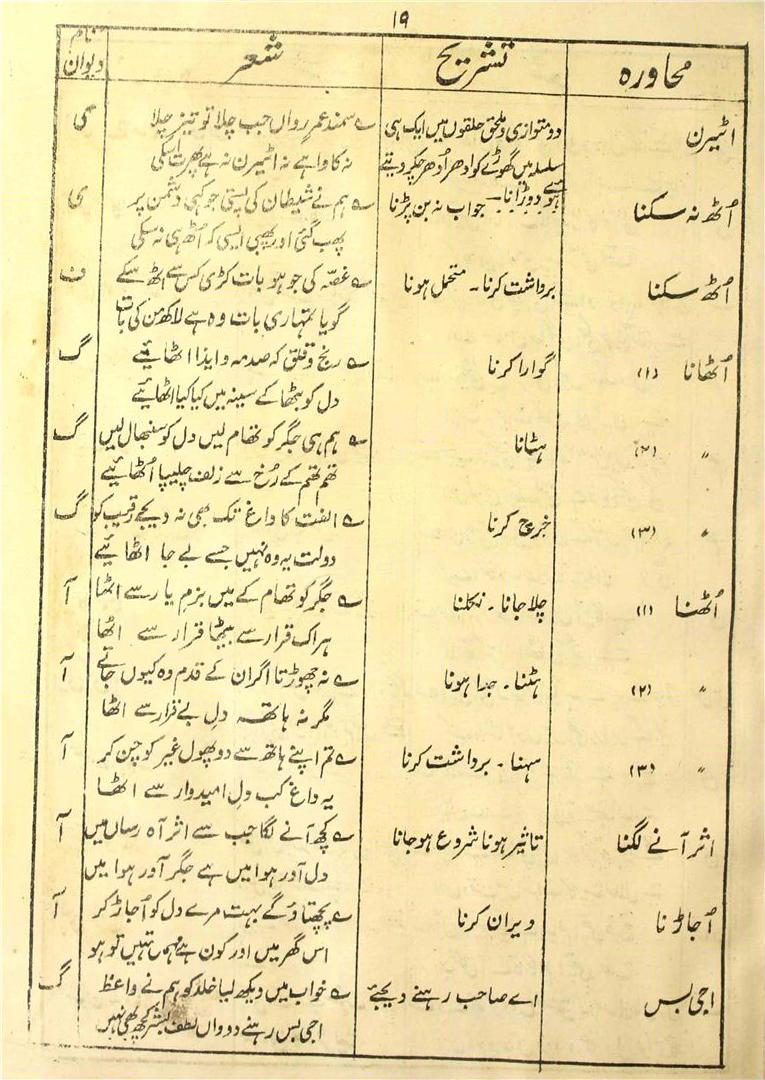 ۱۹
محاورہ تشریح شعر نام دیوان
اٹیرن دو متوازی و ملحق حلقوں میں ایک ہی ے سمند عمر رواں جب چلا تو تیز چلا ی
سلسلہ میں گھوڑے کو ادھر اُدھر چکر دیتے نہ کاوا ہے نہ اٹیرن نہ ہے پھرت اسکی
ہوے دوڑانا۔
اُٹھ نہ سکنا جواب نہ بن پڑنا ے ہم نے شیطان کی پستی جو کہی دشمن پر ی
پھب گئی اور پھبی ایسی کہ اُٹھ ہی نہ سکی
اُٹھ سکنا برداشت کرنا ۔ متحمل ہونا ے غصّہ کی جو ہو بات کڑی کس سے اٹھ سکے ف
گویا تمہاری بات وہ ہے لاکھ من کی بات
اُٹھانا (۱) گوارا کرنا ے رنج و قلق کہ صدمہ و ایذا اٹھایئے گ
دل کو بٹھا کے سینہ میں کیا کیا اٹھایئے
〃 (۲) ہٹانا ے ہم ہی جگر کو تھام لیں دل کو سنبھال لیں گ
تم تھم کے رُخ سے زلف چلیپا اُٹھایئے
〃 (۳) خرچ کرنا ے الفت کا داغ تک بھی نہ دیجے رقیب کو گ
دولت یہ وہ نہیں جسے بے جا اٹھایئے
اُٹھنا (۱) چلا جانا ۔ نکلنا ے جگر کو تھام کے میں بزم یار سے اٹھا آ
ہر اک قرار سے بیٹھا قرار سے اٹھا
〃 (۲) ہٹنا ۔ جدا ہونا ے نہ چھوڑتا اگر ان کے قدم وہ کیوں جاتے آ
مگر نہ ہاتھ دل بے قرار سے اٹھا
〃 (۳) سہنا ۔ برداشت کرنا ے تم اپنے ہاتھ سے دو پھول غیر کو چن کر آ
یہ داغ کب دل امیدوار سے اٹھا
اثر آنے لگنا تاثیر ہونا شروع ہو جانا ے کچھ آنے لگا جب سے اثر آہ رساں میں آ
دل آور ہوا میں ہے جگر آور ہوا میں
اُجاڑنا ویران کرنا ے پچھتاؤ گے بہت مرے دل کو اُجاڑ کر آ
اس گھر میں اور کون ہے مہماں تمہیں تو ہو
اجی بس اے صاحب رہنے دیجئے ے خواب میں دیکھ لیا خلد کو ہم نے واعظ گ
اجی بس رہنے دو واں لطف بشر کچھ بھی نہیں